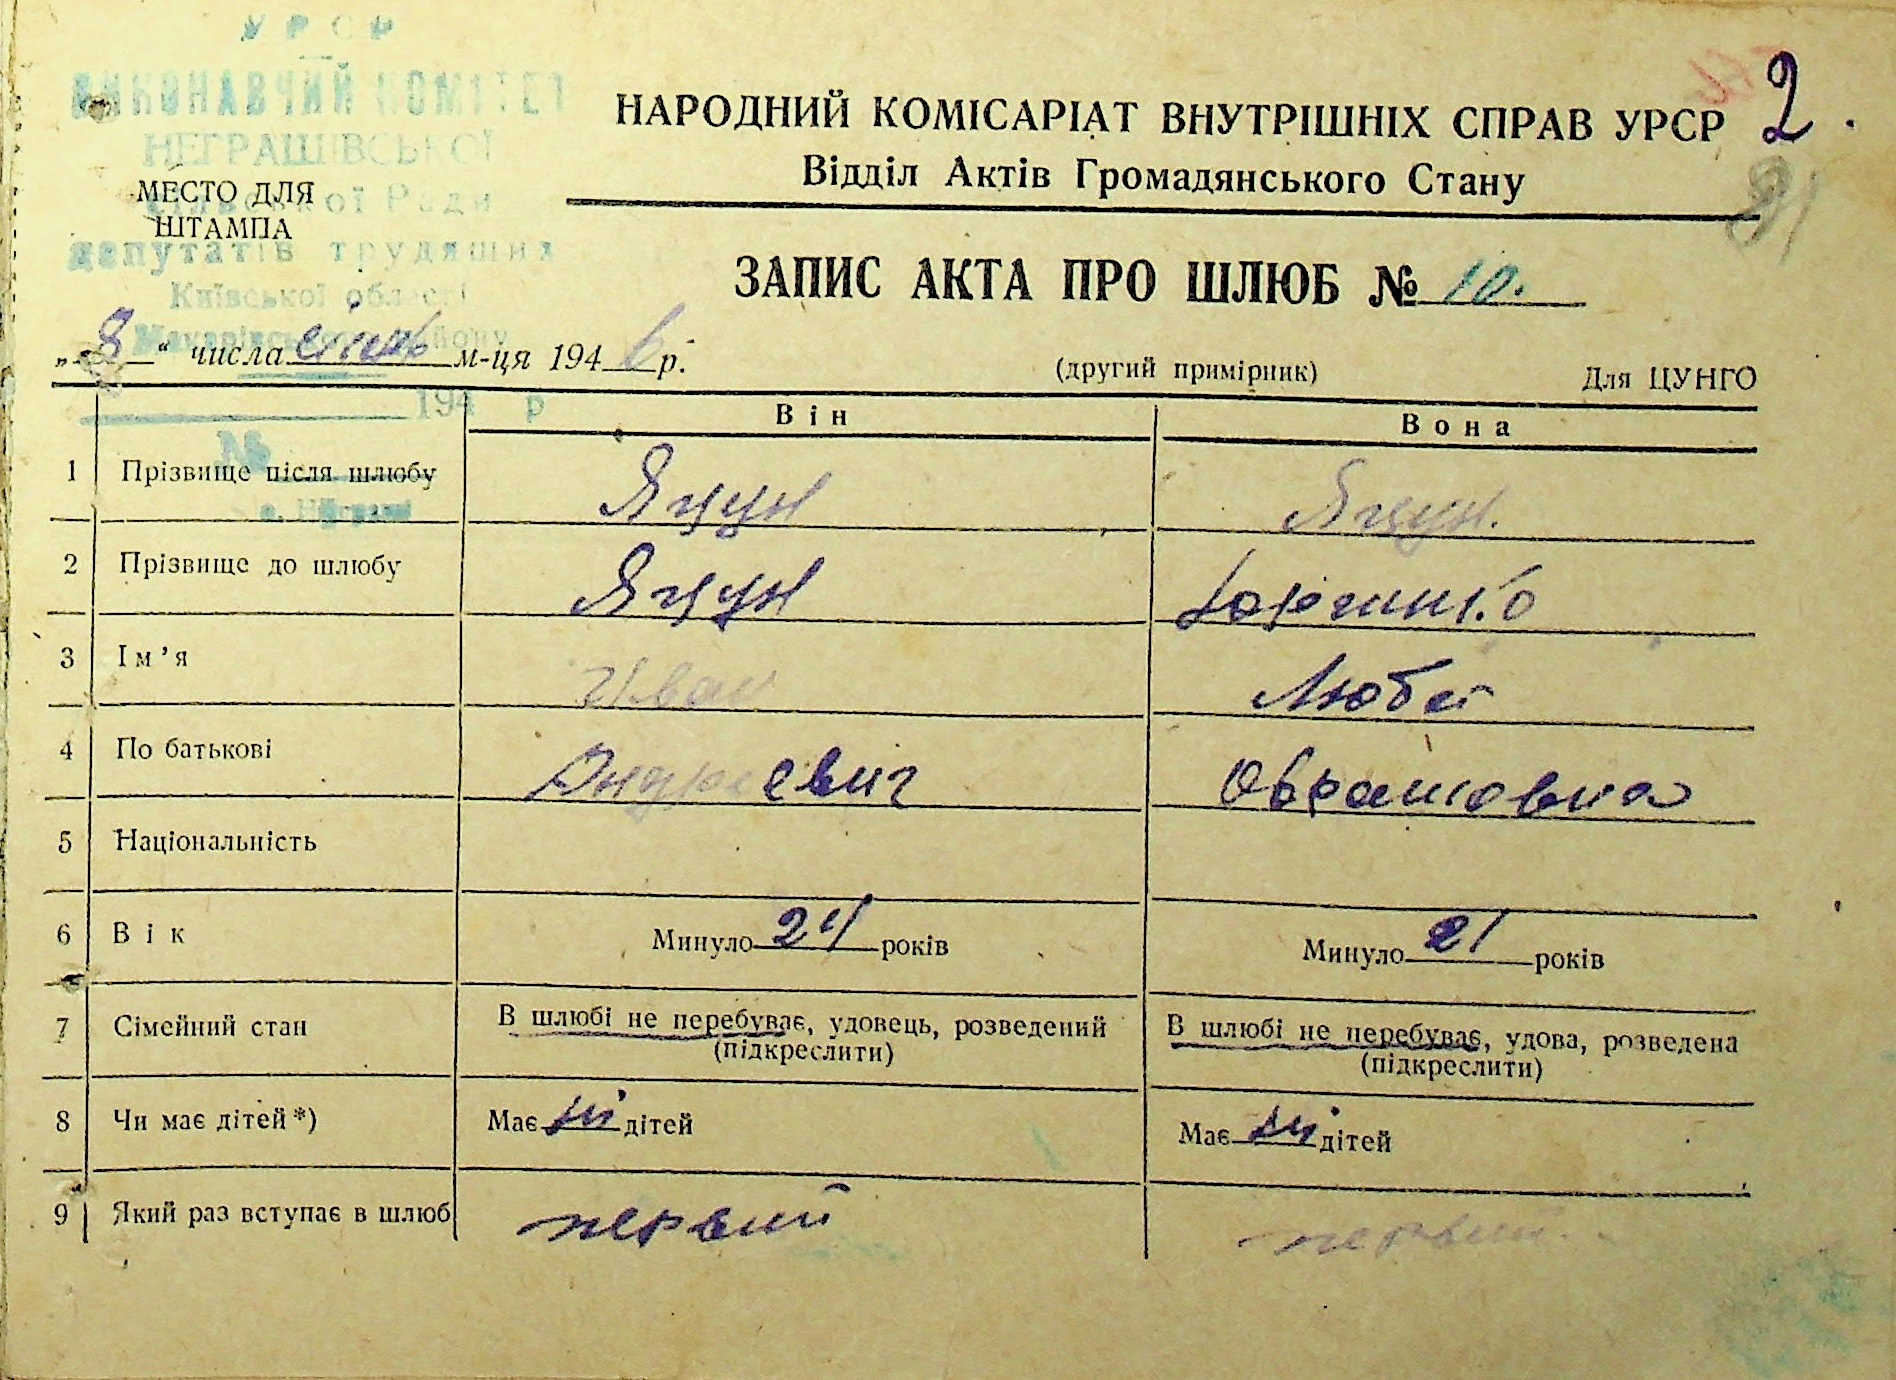 УРСР
ВИКОНАВЧИЙ КОМІТЕТ
НЕГРАШІВСЬКОЇ
сільської Ради
депутатів трудящих
Київської області
Макарівського району
194 р
№
с. Неграші
МЕСТО ДЛЯ
ШТАМПА
НАРОДНИЙ КОМІСАРІАТ ВНУТРІШНІХ СПРАВ УРСР 2.
Відділ Актів Громадянського Стану
ЗАПИС АКТА ПРО ШЛЮБ № 10.
„8“ числа січнь м-ця 1946 р.
(другий примірник) Для ЦУНГО
Він Вона
1 Прізвище після шлюбу Яцун Яцун.
2 Прізвище до шлюбу Яцун
3 Ім’я Иван Любов
4 По батькові Андреевич Оврамовна
5 Національність
6 Вік Минуло 24 років Минуло 21 років
7 Сімейний стан В шлюбі не перебуває, удовець, розведений В шлюбі не перебуває, удова, розведена
(підкреслити) (підкреслити)
8 Чи має дітей*) Має ні дітей Має ні дітей
9 Який раз вступає в шлюб первий первий.